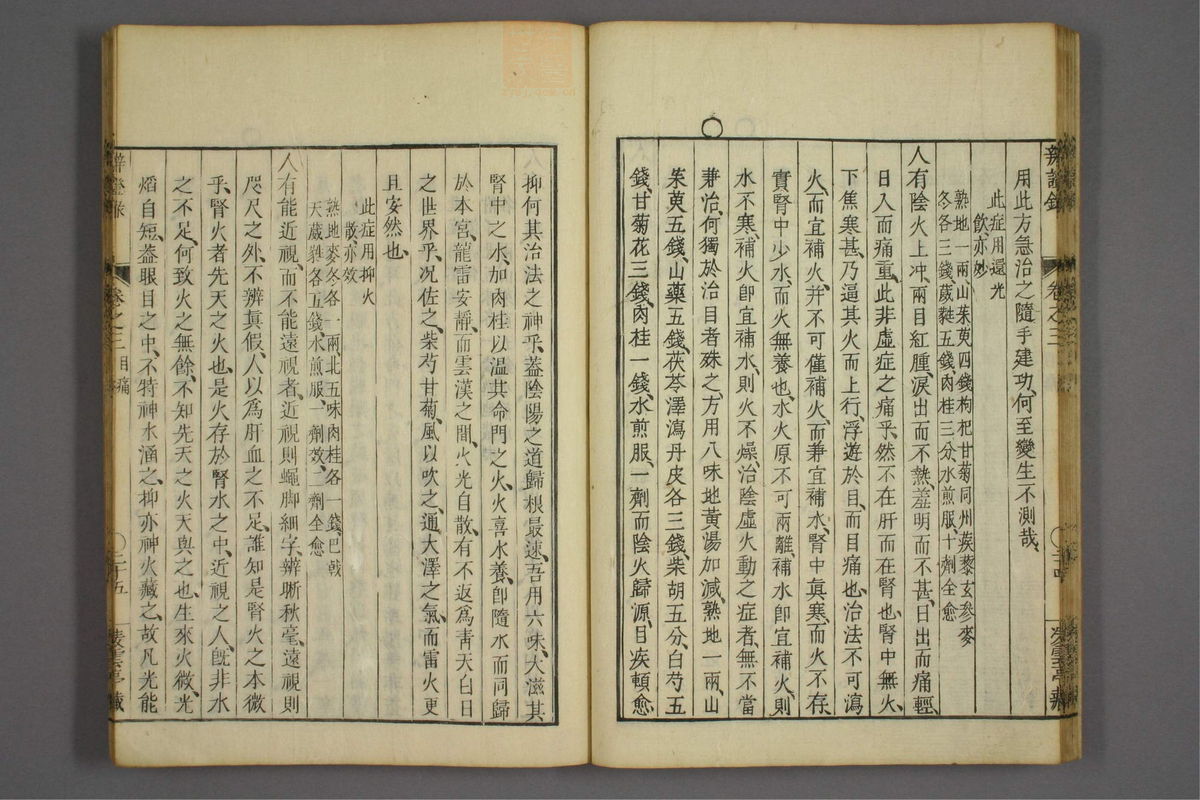 辨證錄 卷之三
用此方急治之隨手建功何至變生不測哉
此症用還光飲亦妙
熟地一兩山茱萸四錢枸杞甘菊同州蒺藜玄參麥
冬各三錢葳蕤五錢肉桂三分水煎服十劑全愈
人有陰火上冲兩目紅腫淚出而不熱羞明而不甚日出而痛輕
日入而痛重此非虛症之痛乎然不在肝而在腎也腎中無火
下焦寒甚乃逼其火而上行浮遊於目而目痛也治法不可瀉
火而宜補火并不可僅補火而兼宜補水腎中眞寒而火不存
實腎中少水而火無養也水火原不可兩離補水卽宜補火則
水不寒補火卽宜補水則火不燥治陰虛火動之症者無不當
兼治何獨於治目者殊之方用八味地黃湯加減熟地一兩山
茱萸五錢山藥五錢茯苓澤瀉丹皮各三錢柴胡五分白芍五
錢甘菊花三錢肉桂一錢水煎服一劑而陰火歸源目疾頓愈
抑何其治法之神乎蓋陰陽之道歸根最速吾用六味大滋其
腎中之水加肉桂以溫其命門之火火喜水養卽隨水而同歸
於本宮龍雷安靜而雲漢之間火光自散有不返爲靑天白日
之世界乎况佐之柴芍甘菊風以吹之通大澤之氣而雷火更
且安然也
此症用抑火散亦效
熟地麥冬各一兩北五味肉桂各一錢巴戟
天葳蕤各五錢水煎服一劑效二劑全愈
人有能近視而不能遠視者近視則蠅脚細字辨晰秋毫遠視則
咫尺之外不辨眞假人以爲肝血之不足誰知是腎火之本微
乎腎火者先天之火也是火存於腎水之中近視之人旣非水
之不足何致火之無餘不知先天之火天與之也生來火微光
熖自短葢眼目之中不特神水涵之抑亦神火藏之故凡光能
辨證錄 卷之三 目痛 二十五